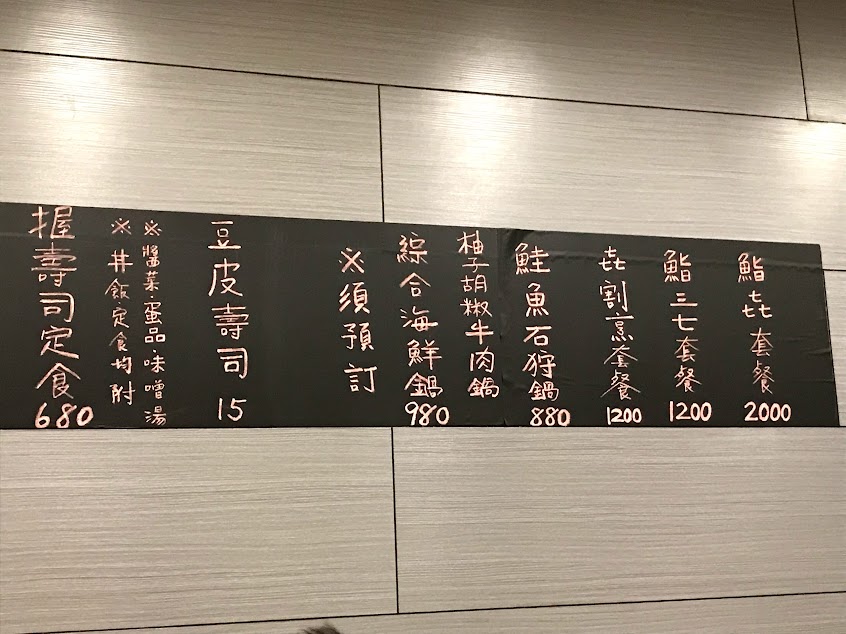 鮨㐂套餐 2000
鮨三七套餐 1200
㐂割烹套餐 1200
鮭魚石狩鍋 880
柚子胡椒牛肉鍋
綜合海鮮鍋 980
※須預訂
豆皮壽司 15
※醬菜·蛋品味噌湯
※丼飯定食均附
握壽司定食 680